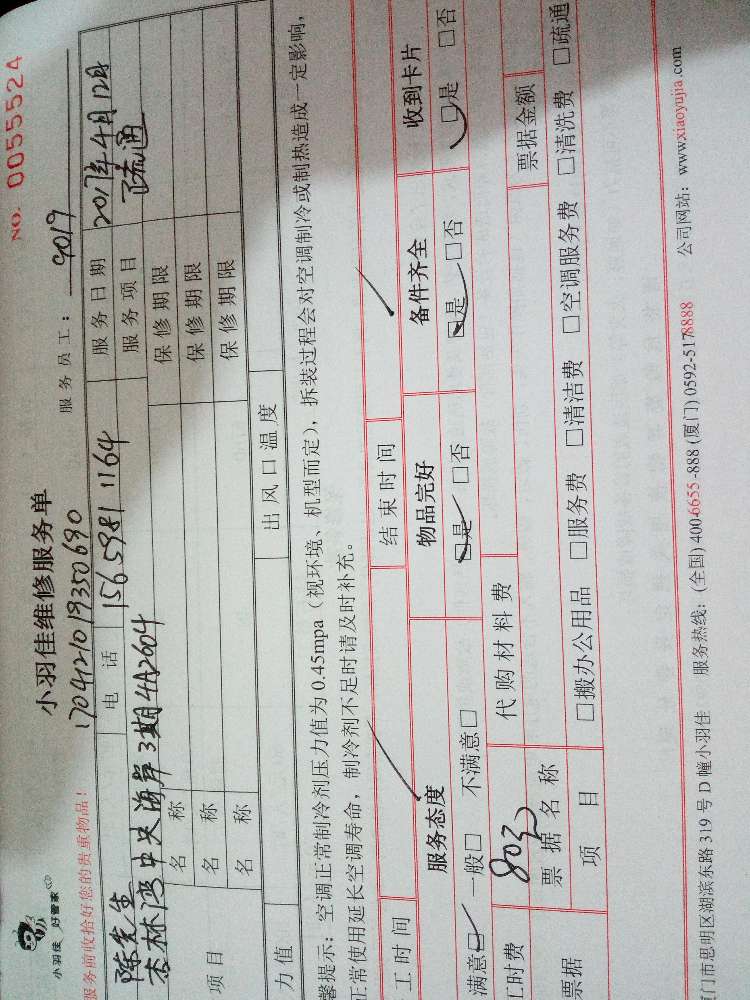 NO. 0055524
小羽佳 好管家
小羽佳维修服务单
1704121019350690
服务员工: 9019
服务前收拾好您的贵重物品!
陈先生 电话 156 5981 1164 服务日期 2017年4月12日
杏林湾中央海岸3期4A2604 服务项目 疏通
项目 名称 保修期限
名称 保修期限
名称 保修期限
力值 出风口温度
馨提示:空调正常制冷剂压力值为 0.45mpa(视环境、机型而定),拆装过程会对空调制冷或制热造成一定影响,
正常使用延长空调寿命,制冷剂不足时请及时补充。
工时间 结束时间
服务态度 物品完好 备件齐全 收到卡片
满意□ 一般□ 不满意□ □是 □否 □是 □否 □是 □否
工时费 80元 代购材料费
票据 票据名称 票据金额
项目 □搬办公用品 □服务费 □清洁费 □空调服务费 □清洗费 □疏通
厦门市思明区湖滨东路 319 号 D 幢小羽佳 服务热线:(全国) 400-6655-888 (厦门) 0592-5178888 公司网站:www.xiaoyujia.com